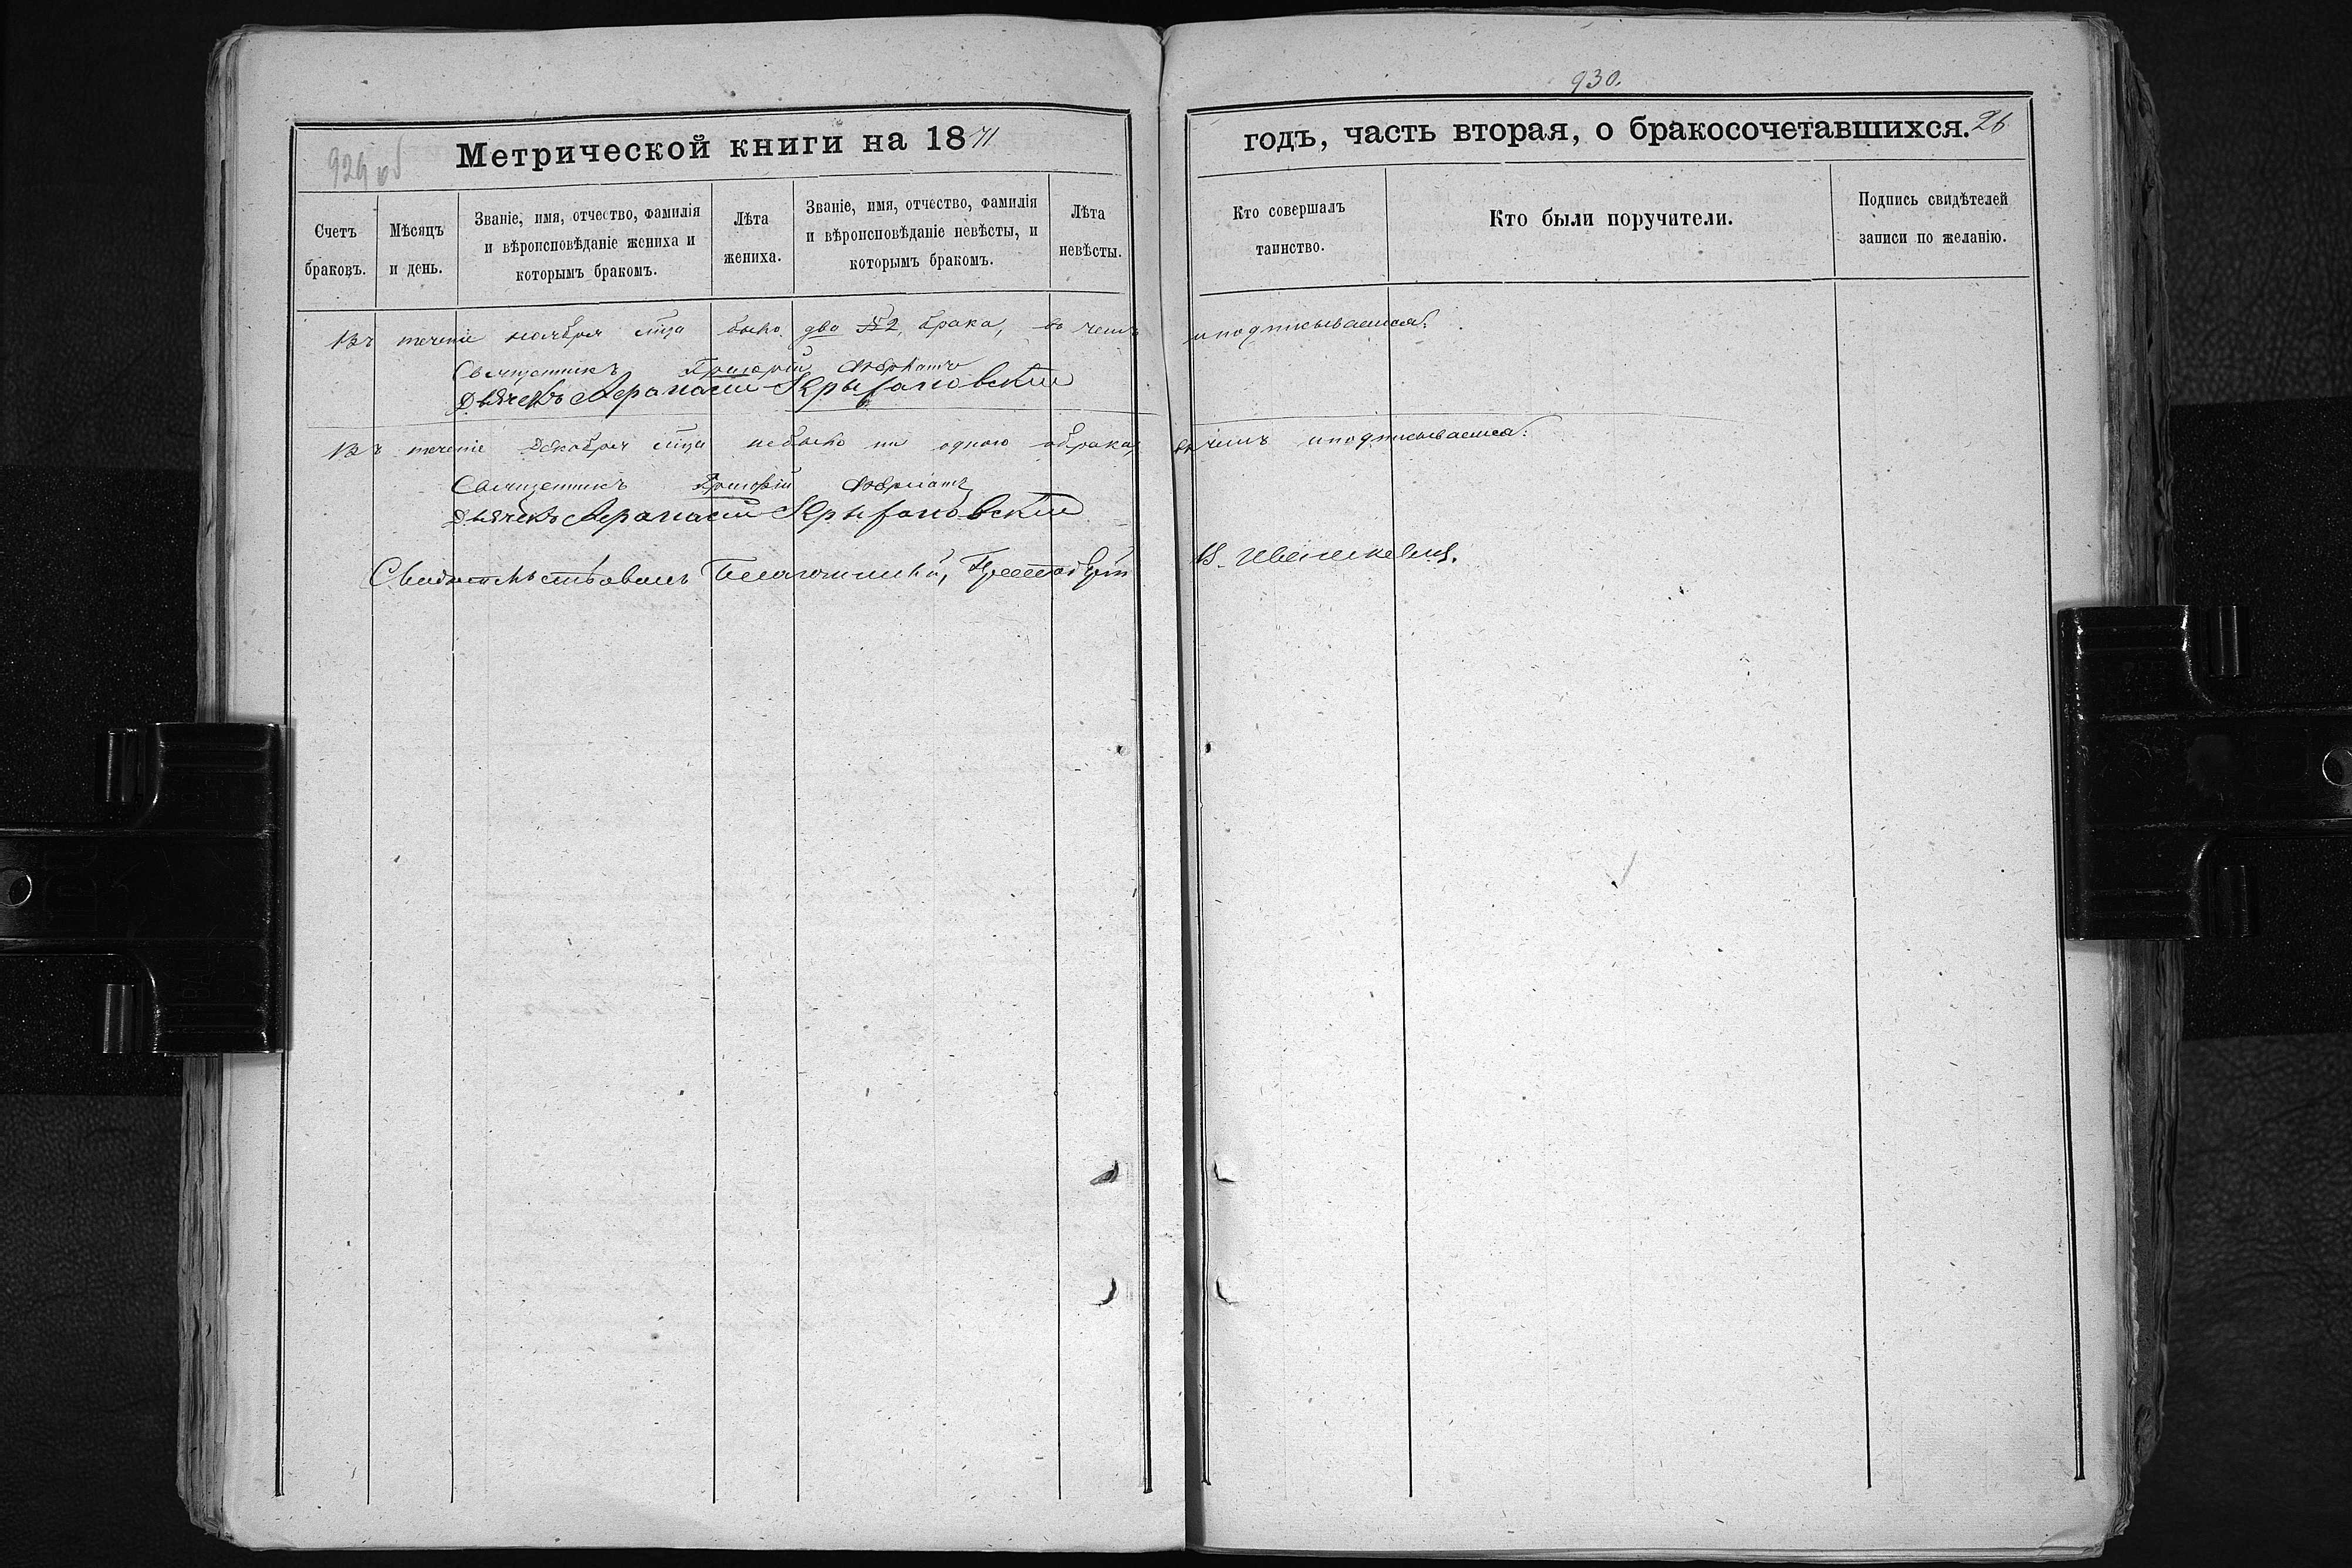 930.
929 об
Метрической книги на 1871
годъ, часть вторая, о бракосочетавшихся. 26
Счетъ браковъ.
Мѣсяцъ и день.
Званіе, имя, отчество, фамилія
и вѣроисповѣданіе жениха и
которымъ бракомъ.
Лѣта жениха.
Званіе, имя, отчество, фамилія
и вѣроисповѣданіе невѣсты, и
которымъ бракомъ.
Лѣта невѣсты.
Кто совершалъ
таинство.
Кто были поручители.
Подпись свидѣтелей
записи по желанію.
Въ теченіе ноября мца было два 2, брака, въ чемъ и подписываемся:
Священникъ Григорій
Дьячекъ Афанасий Крыжановский
Въ теченіе Декабря мца небыло ни одного брака, въ чемъ и подписываемся:
Священникъ Григорій
Дьячекъ Афанасий Крыжановский
Свидетельствовалъ Благочинный,